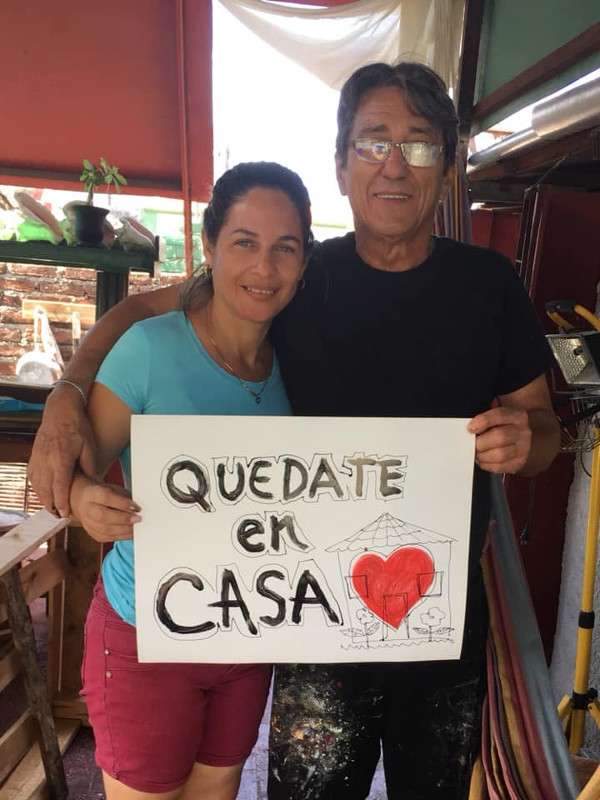 QUEDATE
en
CASA